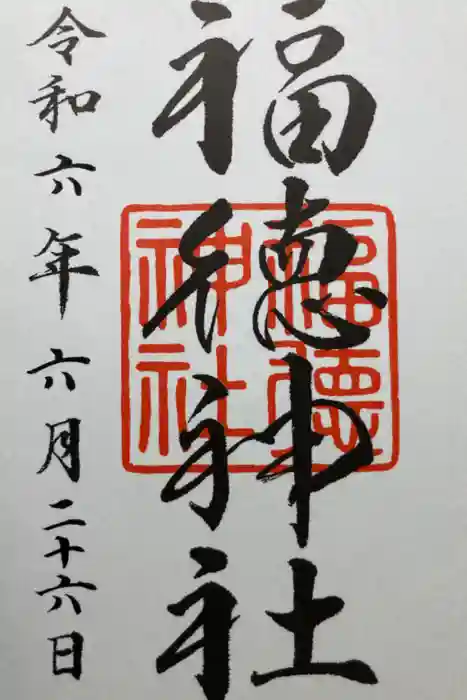 福徳神社
福徳神社
令和六年六月二十六日